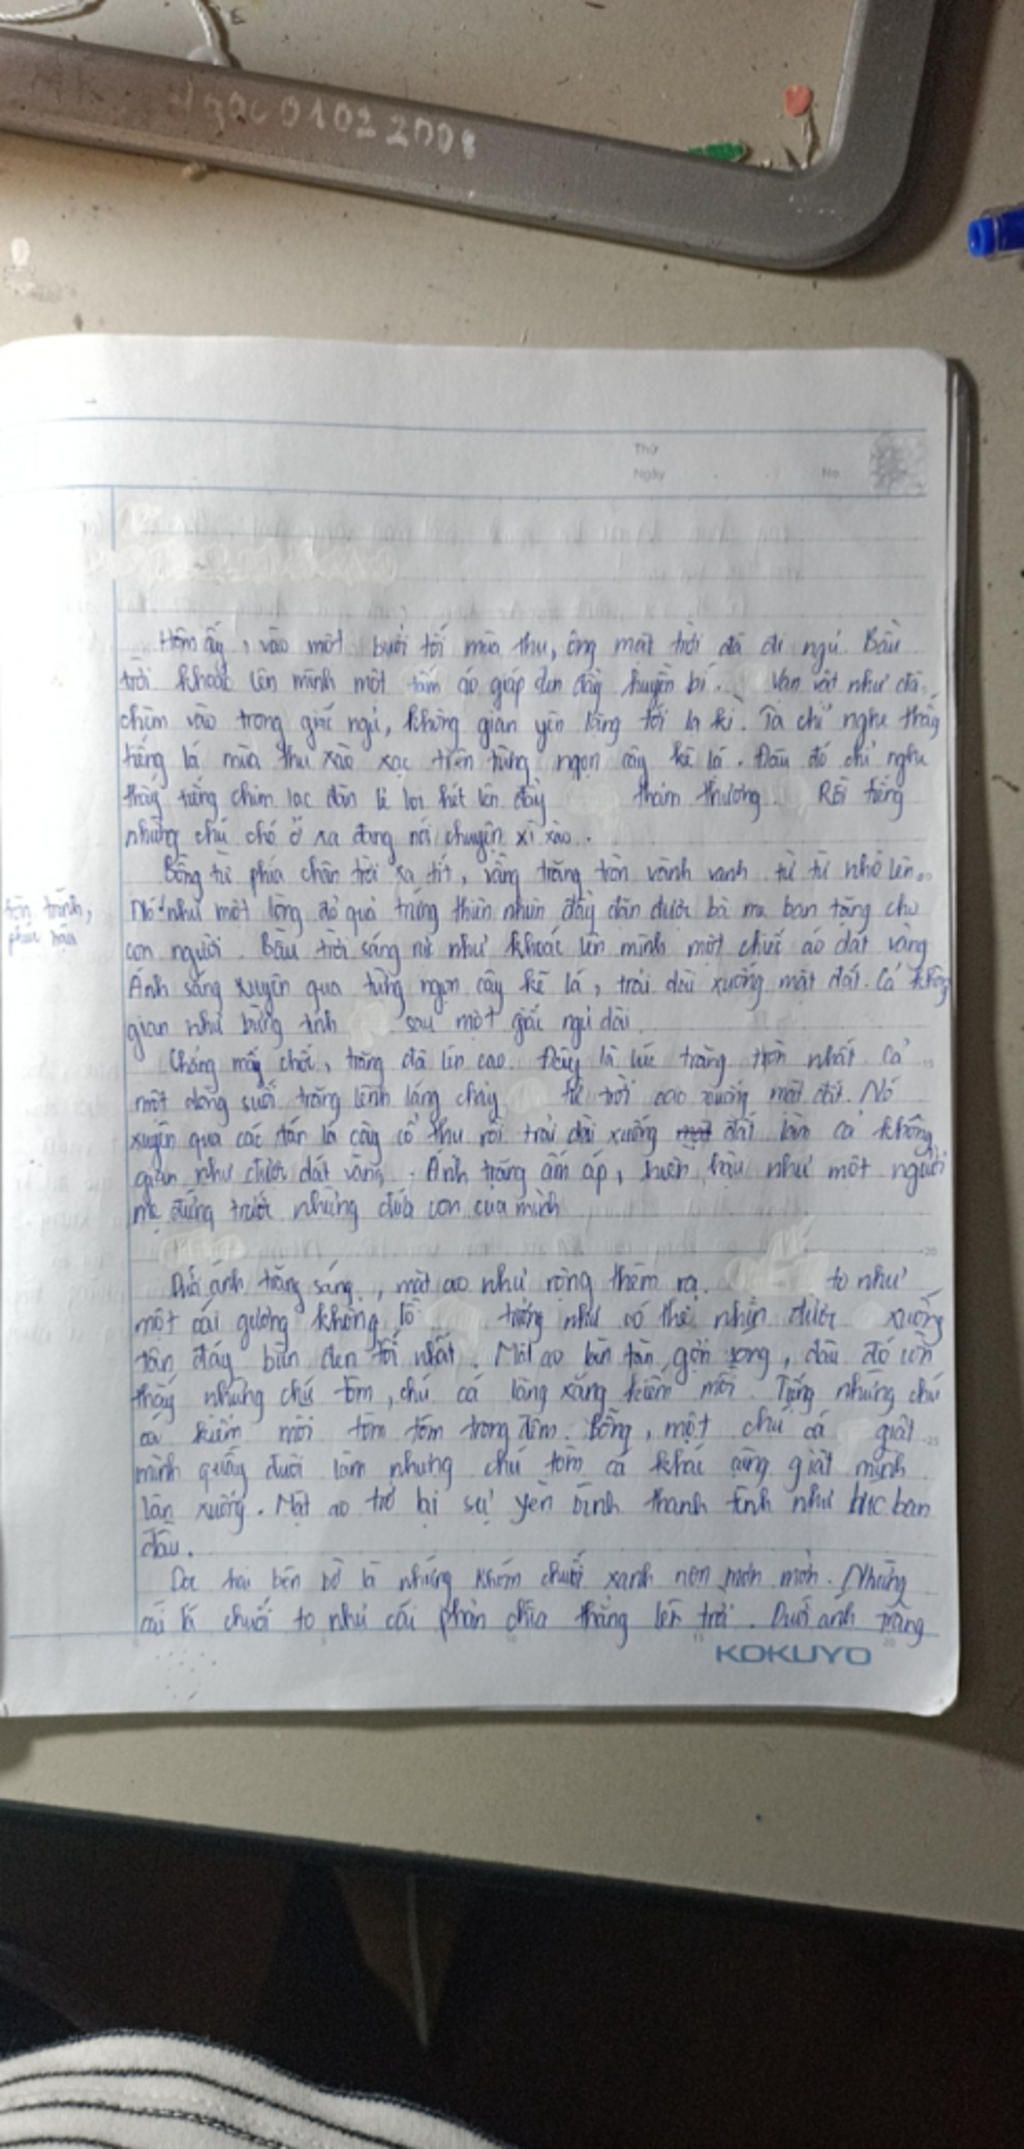 Ngọc 01022008
Thứ
Ngày No
Hôm ấy, vào một buổi tối mùa thu, ông mặt trời đã đi ngủ. Bầu
trời khoác lên mình một tấm áo giáp đen đầy huyền bí. Vạn vật như đã
chìm vào trong giấc ngủ, không gian yên lặng tới lạ kì. Ta chỉ nghe thấy
tiếng lá mùa thu xào xạc trên từng ngọn cây kẽ lá. Đâu đó chỉ nghe
thấy tiếng chim lạc đàn lẻ loi hót lên đầy thảm thương. Rồi tiếng
những chú chó ở xa đang nói chuyện xì xào.
Bỗng từ phía chân trời xa tít, vầng trăng tròn vành vạnh từ từ nhô lên.
Nó như một lòng đỏ quả trứng thiên nhiên đầy đặn được bà mẹ ban tặng cho
con người. Bầu trời sáng như khoác lên mình một chiếc áo dát vàng
Ánh sáng xuyên qua từng ngọn cây kẽ lá, trải dài xuống mặt đất. Cả không
gian như bừng tỉnh sau một giấc ngủ dài.
Chẳng mấy chốc, trăng đã lên cao. Đây là lúc trăng tròn nhất. Cả
một dòng suối trăng lênh láng chảy từ trời cao xuống mặt đất. Nó
xuyên qua các tán lá cây cổ thụ rồi trải dài xuống đất làm cả không
gian như được dát vàng. Ánh trăng ấm áp, hiền hậu như một người
mẹ đứng trước những đứa con của mình
Dưới ánh trăng sáng, mặt ao như rộng thêm ra. to như
một cái gương khổng lồ tưởng như có thể nhìn được xuống
tận đáy bùn đen tối nhất. Mặt ao lăn tăn gợn sóng, đâu đó còn
thấy những chú tôm, chú cá lăng xăng kiếm mồi. Tiếng những chú
cá kiếm mồi tôm tốm trong đêm. Bỗng, một chú cá giật
mình quẫy đuôi làm những chú tôm cá khác cũng giật mình
lặn xuống. Mặt ao trở lại sự yên bình thanh tĩnh như lúc ban
đầu.
Dọc hai bên bờ là những khóm chuối xanh non mơn mởn. Những
cái lá chuối to như cái phản chĩa thẳng lên trời. Dưới ánh trăng
KOKUYO